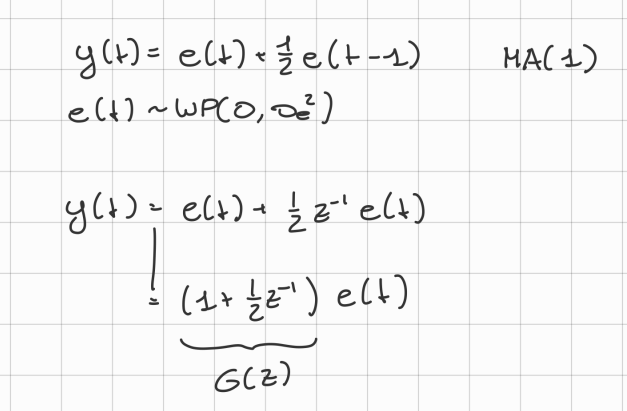 y(t) = e(t) + 1/2 e(t-1)    MA(1)
e(t) ~ WP(0, σe²)
y(t) = e(t) + 1/2 z⁻¹ e(t)
= (1 + 1/2 z⁻¹) e(t)
G(z)